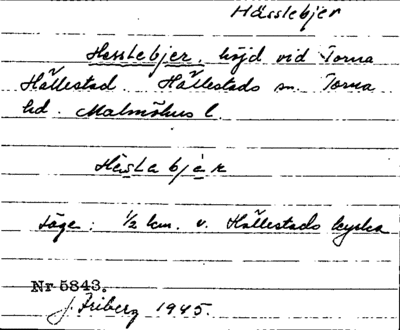 Hässlebjer
Hesslebjer, höjd vid Torna
Hällestad. Hällestads sn. Torna
hd. Malmöhus l.
Häslabjär
Läge: 1/2 km. v. Hällestads kyrka
Nr 5843.
J. Friberg 1945.